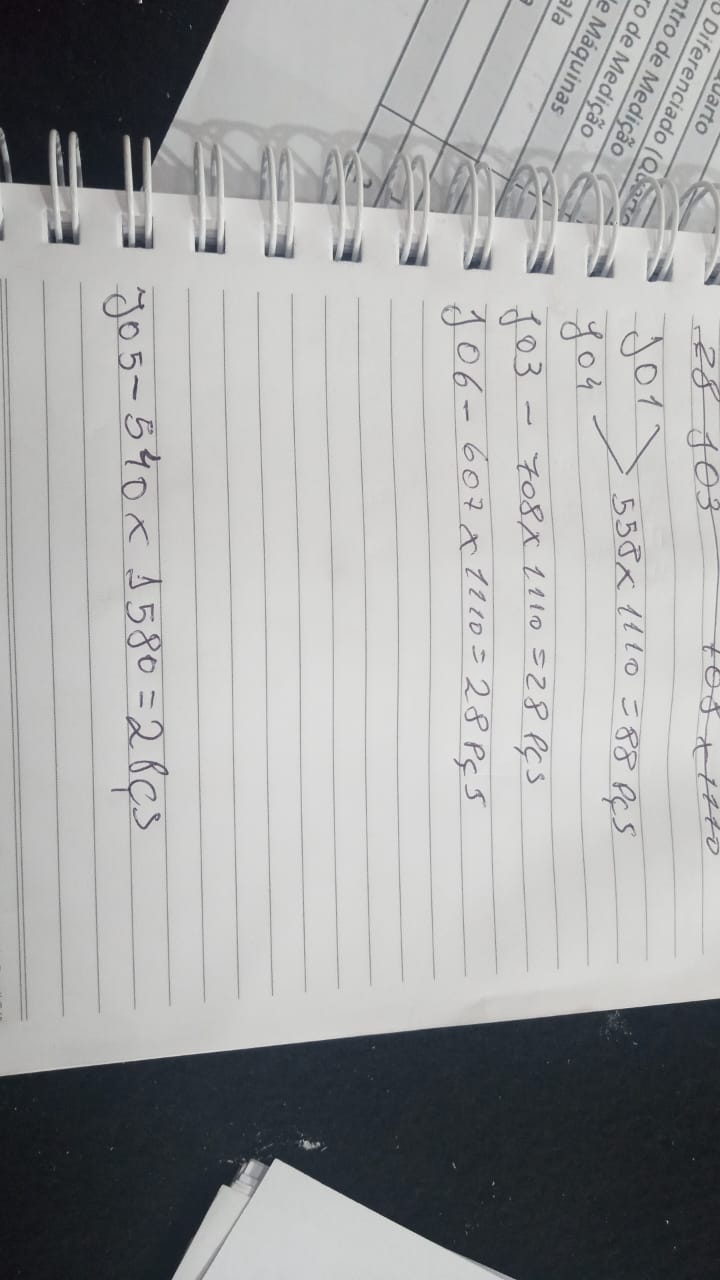 o Diferenciado (Quarto
ntro de Medição
ro de Medição
e Máquinas
ala
28 J03 708 x 1110
J01
J04 558 x 1110 = 88 Pçs
J03 - 708 x 1110 = 28 Pçs
J06 - 607 x 1110 = 28 Pçs
J05 - 540 x 1580 = 2 Pçs